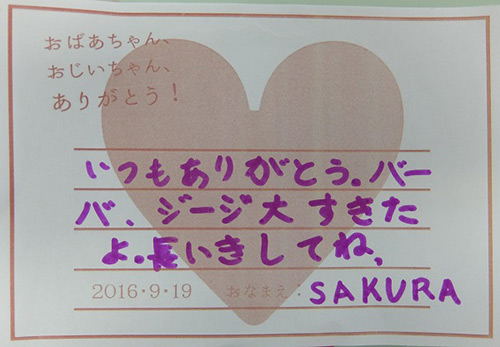 おばあちゃん、
おじいちゃん、
ありがとう！
いつもありがとう。バー
バ、ジージ大すきた
よ。長いきしてね、
2016・9・19 おなまえ：SAKURA